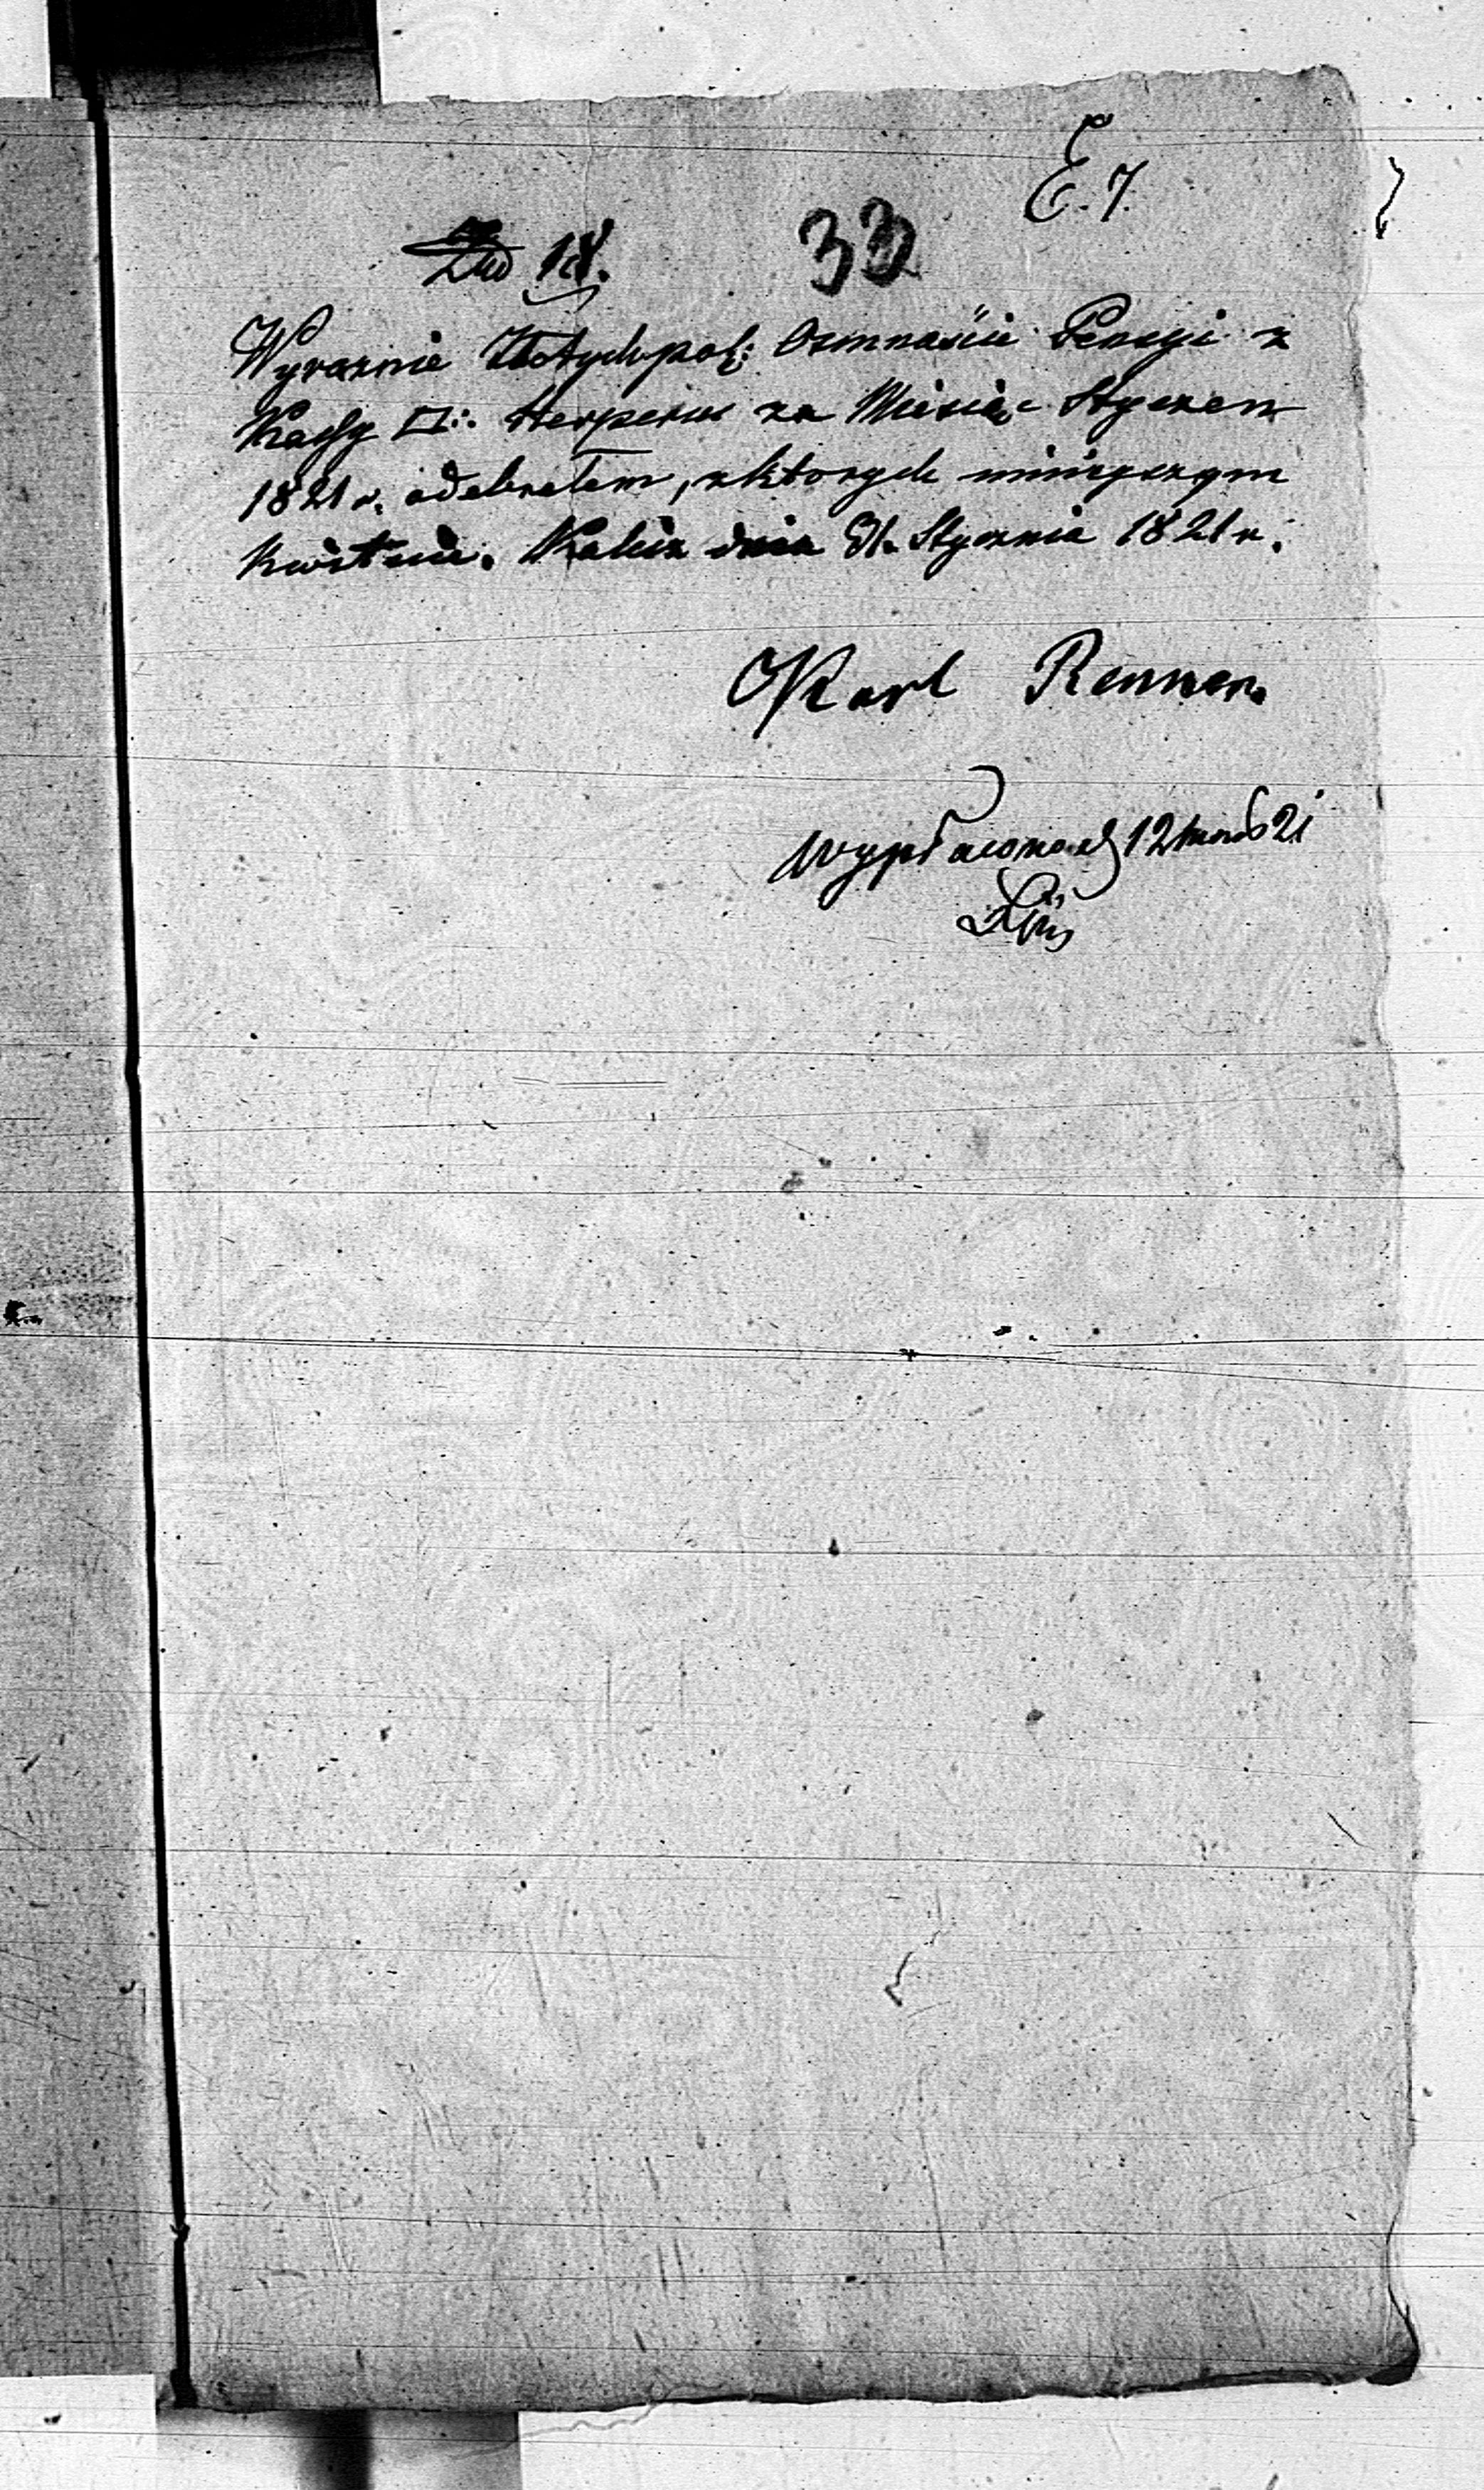 E. 7.
33
18.
Wyraznie Złotych pol: Osmnaście Pensyi z
Kassy □∴ Hesperus za Miesiąc Styczen
1821 r. odebrałem, z ktorych ninieyszym
kwituie. Kalisz dnia 31. Stycznia 1821 r.
Karl Renner.
wypłacono d 12 21